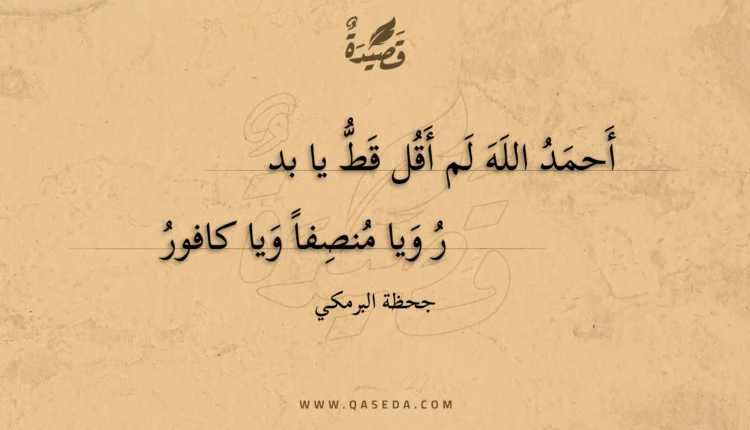 قَصِيْدَةٌ
أَحمَدُ اللَهَ لَم أَقُل قَطُّ يا بد
رُ وَيا مُنصِفاً وَيا كافورُ
جحظة البرمكي
WWW.QASEDA.COM